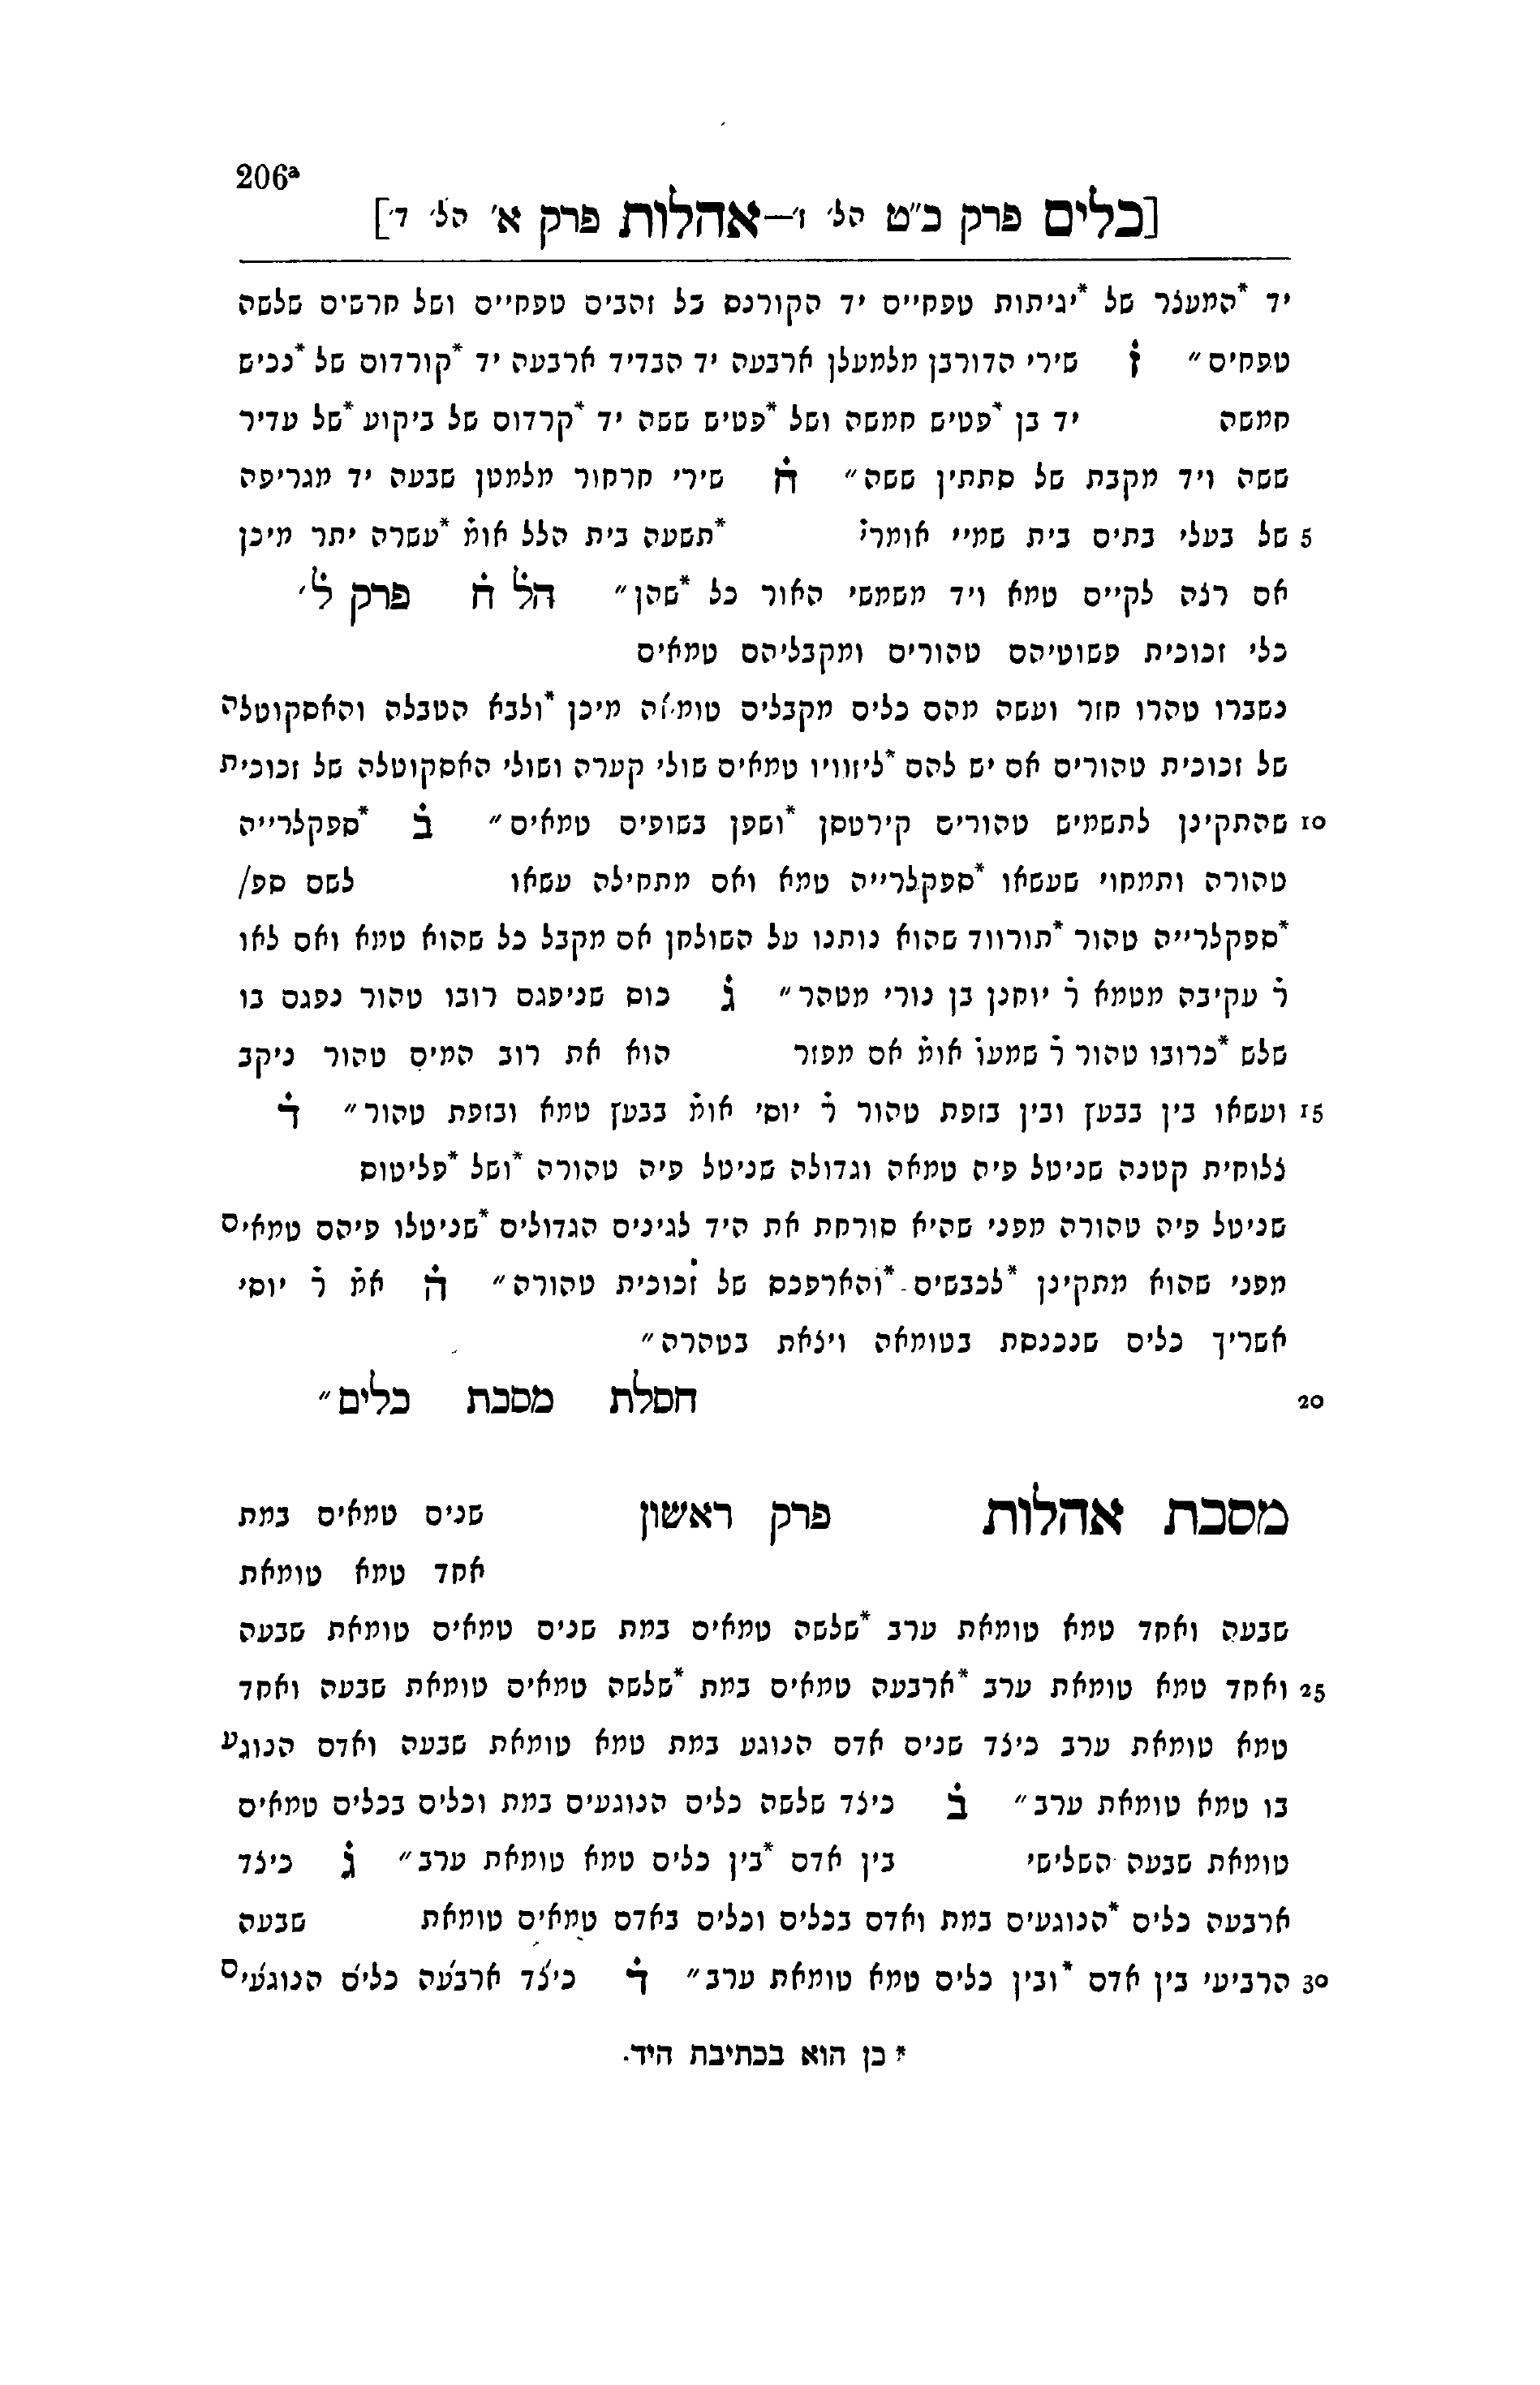 206ª
[כלים פרק כ״ט הל׳ ו׳—אהלות פרק א׳ הל׳ ד׳]
יד *המעצר של *יגיתות טפחיים יד הקורנס בל זהבים טפחיים ושל חרשים שלשה
טפחים״ ז̇ שירי הדורבן מלמעלן ארבעה יד הבדיד ארבעה יד *קורדום של *נכיש
חמשה יד בן *פטיש חמשה ושל *פטיש ששה יד *קרדום של ביקוע *של עדיר
ששה ויד מקבת של סתתין ששה״ ח̇ שירי חרחור מלמטן שבעה יד מגריפה
5 של בעלי בתים בית שמיי אומרי̇ *תשעה בית הלל אומ̇ *עשרה יתר מיכן
אם רצה לקיים טמא ויד משמשי האור כל *שהן״ הל̇ ח̇ פרק ל׳
כלי זכוכית פשוטיהם טהורים ומקבליהם טמאים
נשברו טהרו חזר ועשה מהם כלים מקבלים טומאה מיכן *ולבא הטבלה והאסקוטלה
של זכוכית טהורים אם יש להם *ליזוויו טמאים שולי קערה ושולי האסקוטלה של זכוכית
10 שהתקינן לתשמיש טהורים קירטסן *ושפן בשופים טמאים״ ב̇ *ספקלרייה
טהורה ותמחוי שעשאו *ספקלרייה טמא ואם מתחילה עשאו לשם ספ/
*ספקלרייה טהור *תורווד שהוא נותנו על השולחן אם מקבל כל שהוא טמא ואם לאו
ר̇ עקיבה מטמא ר̇ יוחנן בן נורי מטהר״ ג̇ כוס שניפגם רובו טהור נפגם בו
שלש *כרובו טהור ר̇ שמעו̇ אומ̇ אם מפזר הוא את רוב המים טהור ניקב
15 ועשאו בין בבעץ ובין בזפת טהור ר̇ יוסי אומ̇ בבעץ טמא ובזפת טהור״ ד̇
צלוחית קטנה שניטל פיה טמאה וגדולה שניטל פיה טהורה *ושל *פליטום
שניטל פיה טהורה מפני שהיא סורחת את היד לגינים הגדולים *שניטלו פיהם טמאים
מפני שהוא מתקינן *לכבשים *והארפכס של זכוכית טהורה״ ה̇ אמ̇ ר̇ יוסי
אשריך כלים שנכנסת בטומאה ויצאת בטהרה״
20 חסלת מסכת כלים״
מסכת אהלות פרק ראשון שנים טמאים במת
אחד טמא טומאת
שבעה ואחד טמא טומאת ערב *שלשה טמאים במת שנים טמאים טומאת שבעה
25 ואחד טמא טומאת ערב *ארבעה טמאים במת *שלשה טמאים טומאת שבעה ואחד
טמא טומאת ערב כיצד שנים אדם הנוגע במת טמא טומאת שבעה ואדם הנוגע
בו טמא טומאת ערב״ ב̇ כיצד שלשה כלים הנוגעים במת וכלים בכלים טמאים
טומאת שבעה השלישי בין אדם *בין כלים טמא טומאת ערב״ ג̇ כיצד
ארבעה כלים *הנוגעים במת ואדם בכלים וכלים באדם טמאים טומאת שבעה
30 הרביעי בין אדם *ובין כלים טמא טומאת ערב״ ד̇ כיצד ארבעה כלים הנוגעים
* כן הוא בכתיבת היד.